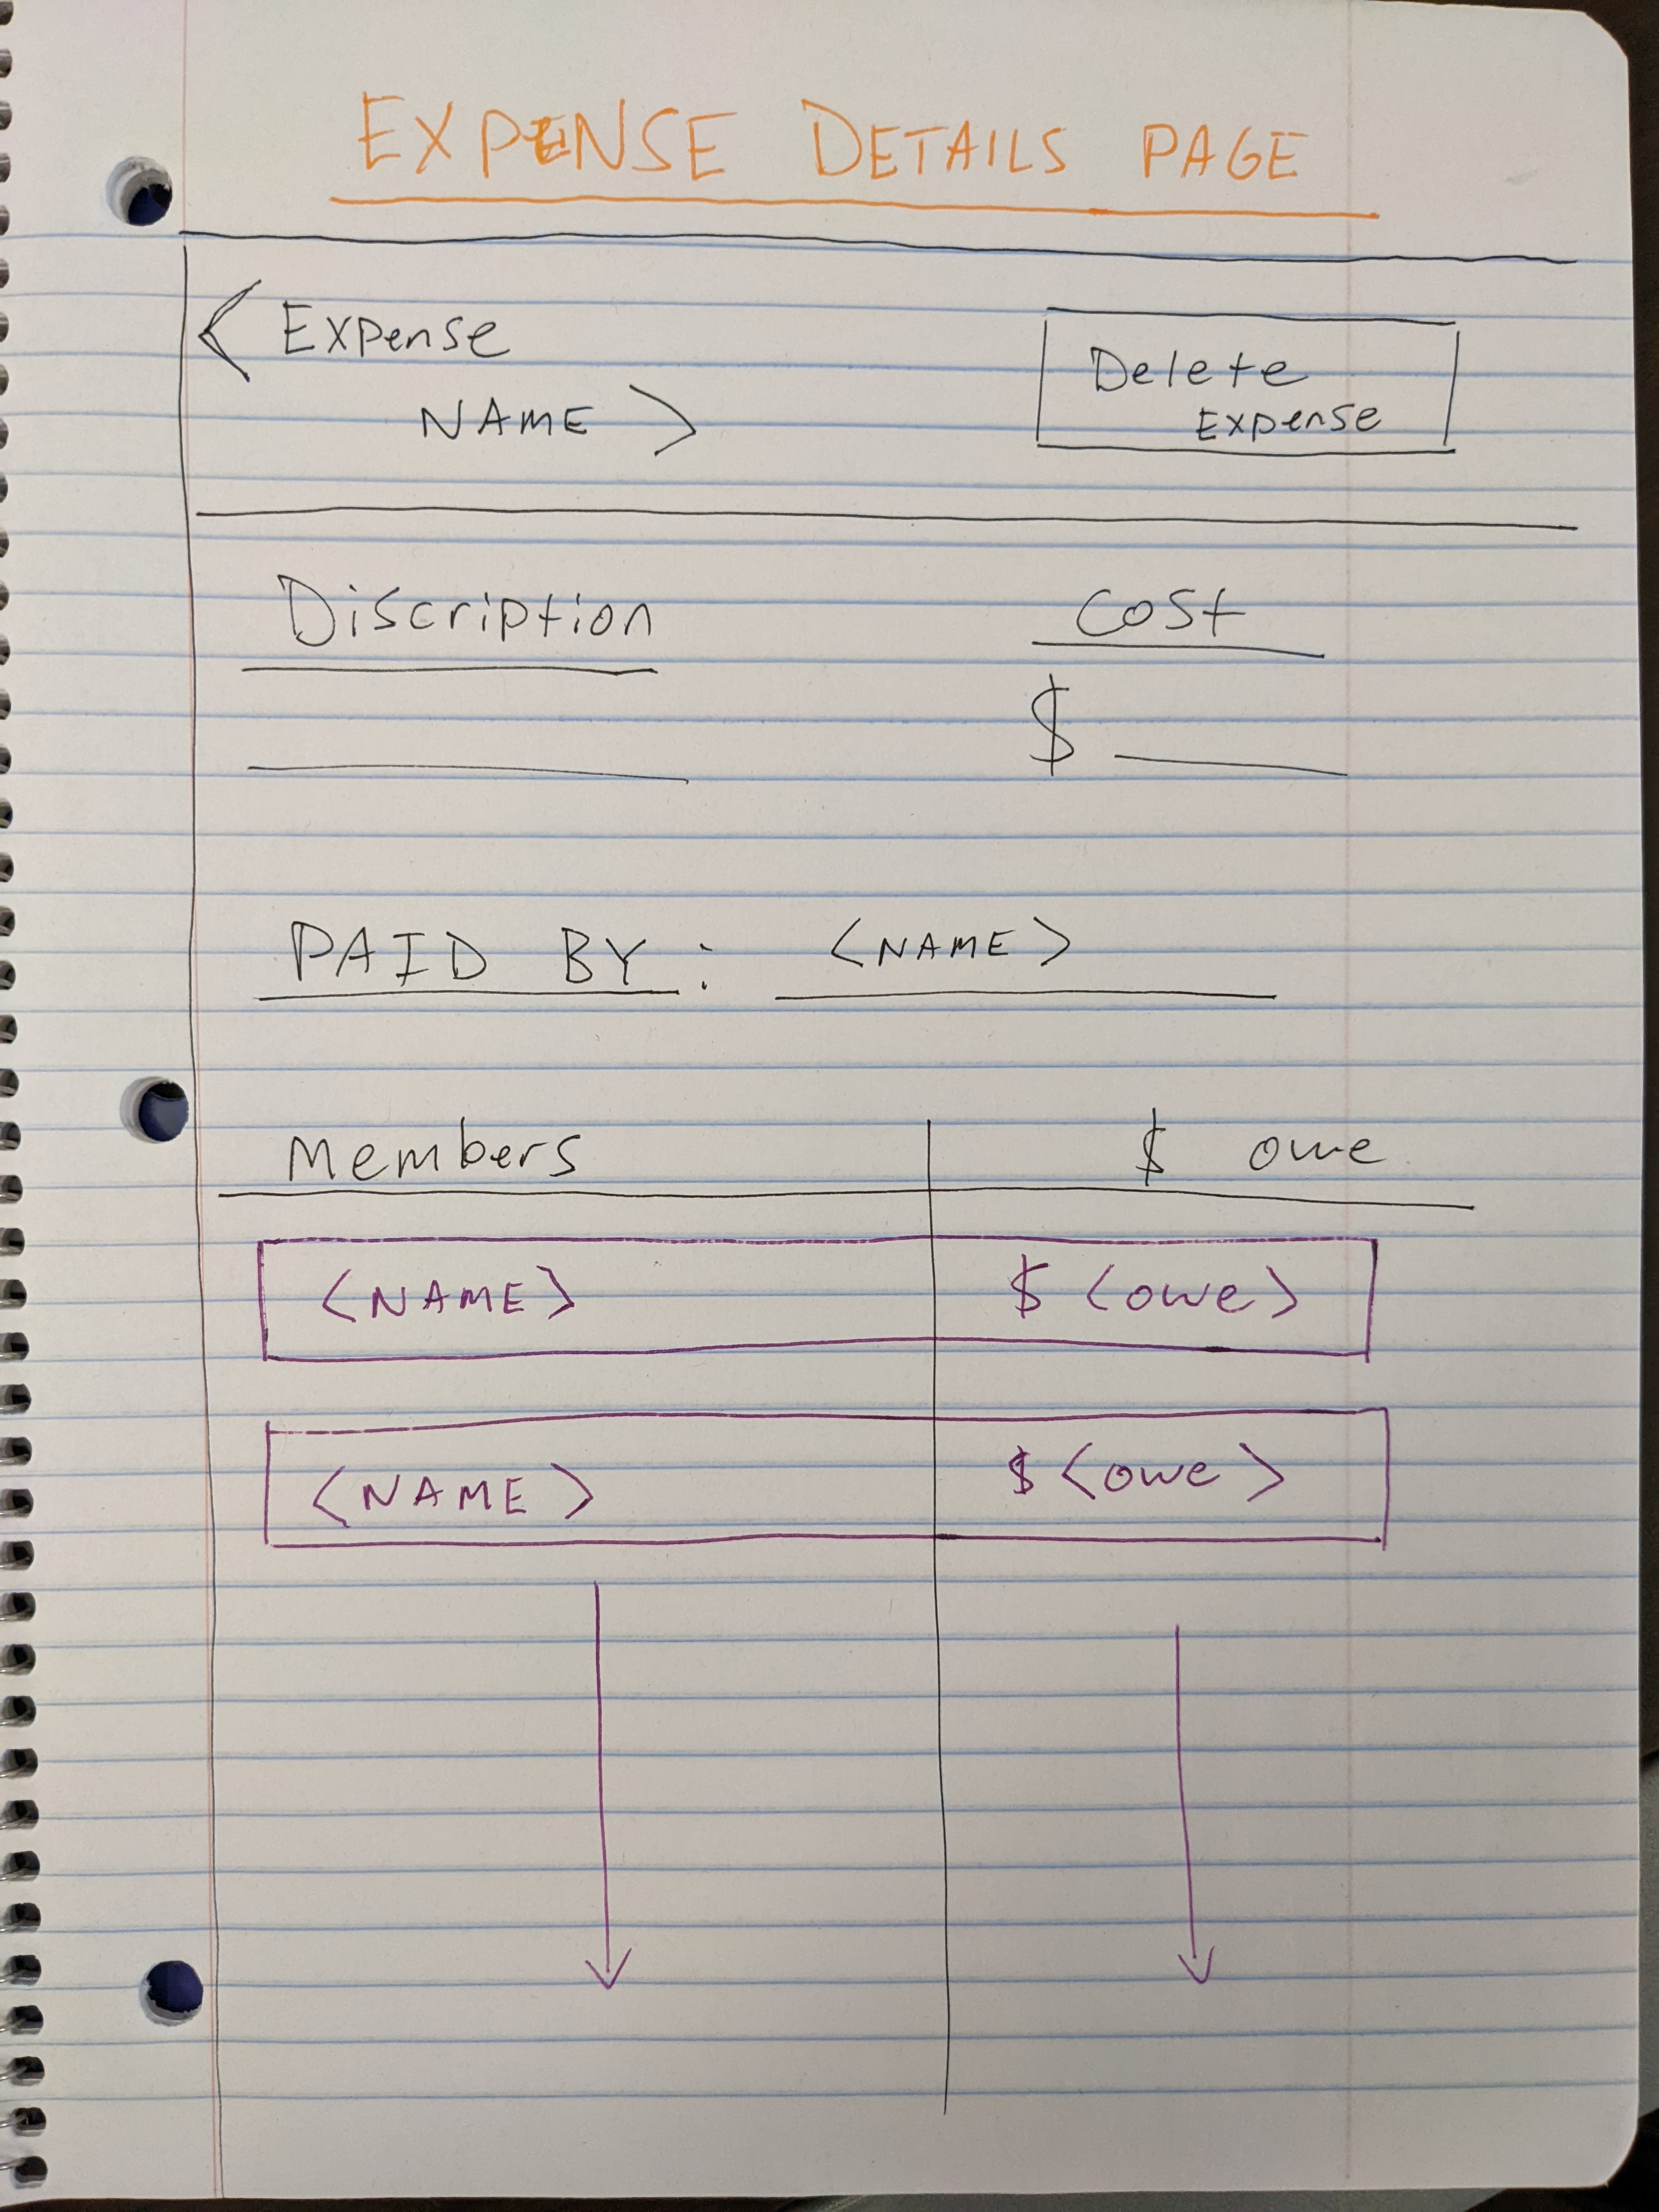 EXPENSE DETAILS PAGE
< Expense
NAME >
Delete
Expense
Discription
Cost
$
PAID BY : <NAME>
Members
$ owe
<NAME>
$ <owe>
<NAME>
$ <owe>